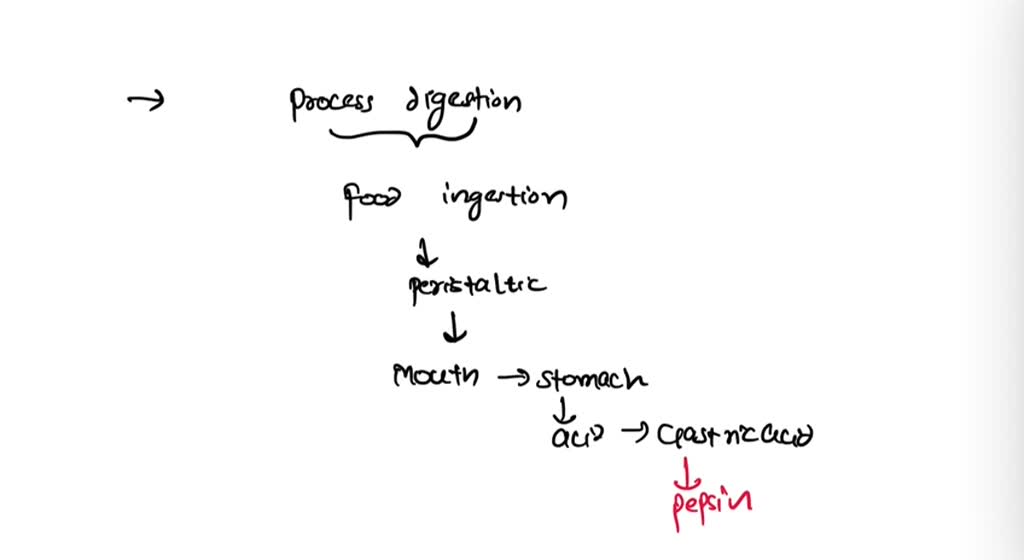 → process digestion
food ingestion
↓
peristaltic
↓
Mouth → stomach
↓
acid → Gastric acid
↓
pepsin